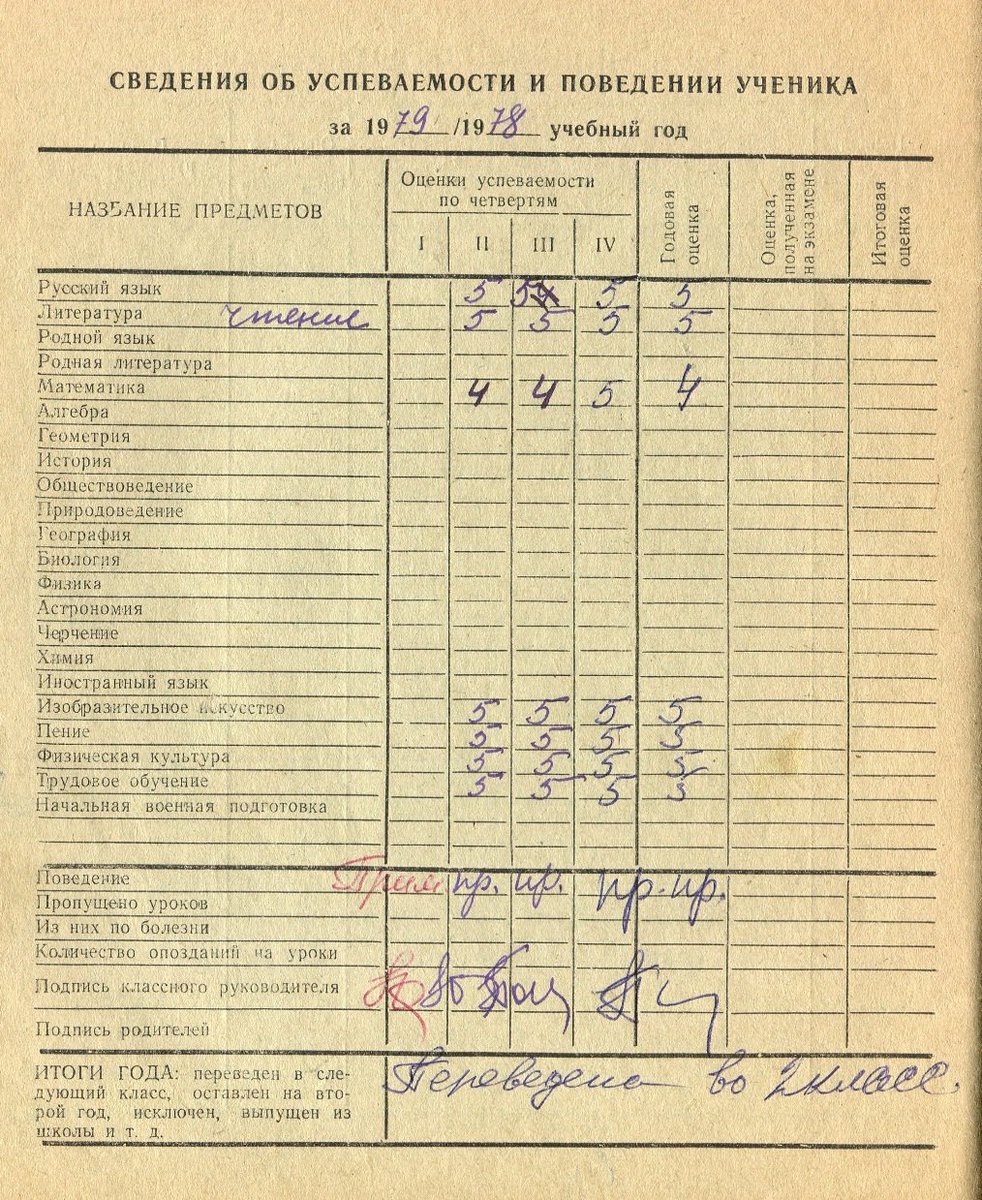 СВЕДЕНИЯ ОБ УСПЕВАЕМОСТИ И ПОВЕДЕНИИ УЧЕНИКА
за 1979/1978 учебный год
НАЗВАНИЕ ПРЕДМЕТОВ
Оценки успеваемости
по четвертям
I II III IV
Годовая
оценка
Оценка,
полученная
на экзамене
Итоговая
оценка
Русский язык 5 5 4 5 5
Литература чтение 5 5 5 5
Родной язык
Родная литература
Математика 4 4 5 4
Алгебра
Геометрия
История
Обществоведение
Природоведение
География
Биология
Физика
Астрономия
Черчение
Химия
Иностранный язык
Изобразительное искусство 5 5 5 5
Пение 5 5 5 5
Физическая культура 5 5 5 5
Трудовое обучение 5 5 5 5
Начальная военная подготовка
Поведение Прим пр. пр. пр. пр.
Пропущено уроков
Из них по болезни
Количество опозданий на уроки
Подпись классного руководителя
Подпись родителей
ИТОГИ ГОДА: переведен в сле-
дующий класс, оставлен на вто-
рой год, исключен, выпущен из
школы и т. д.
Переведена во 2 класс.